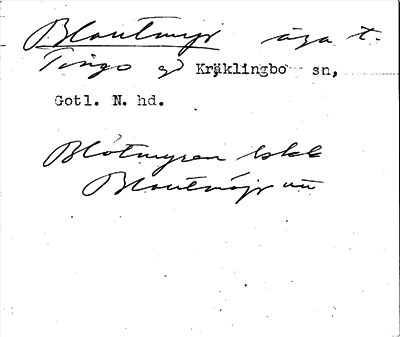 Blautmyr äga t.
Tings g Kräklingbo sn,
Gotl. N. hd.
Blötmyren lskk
Blautmöjr uu